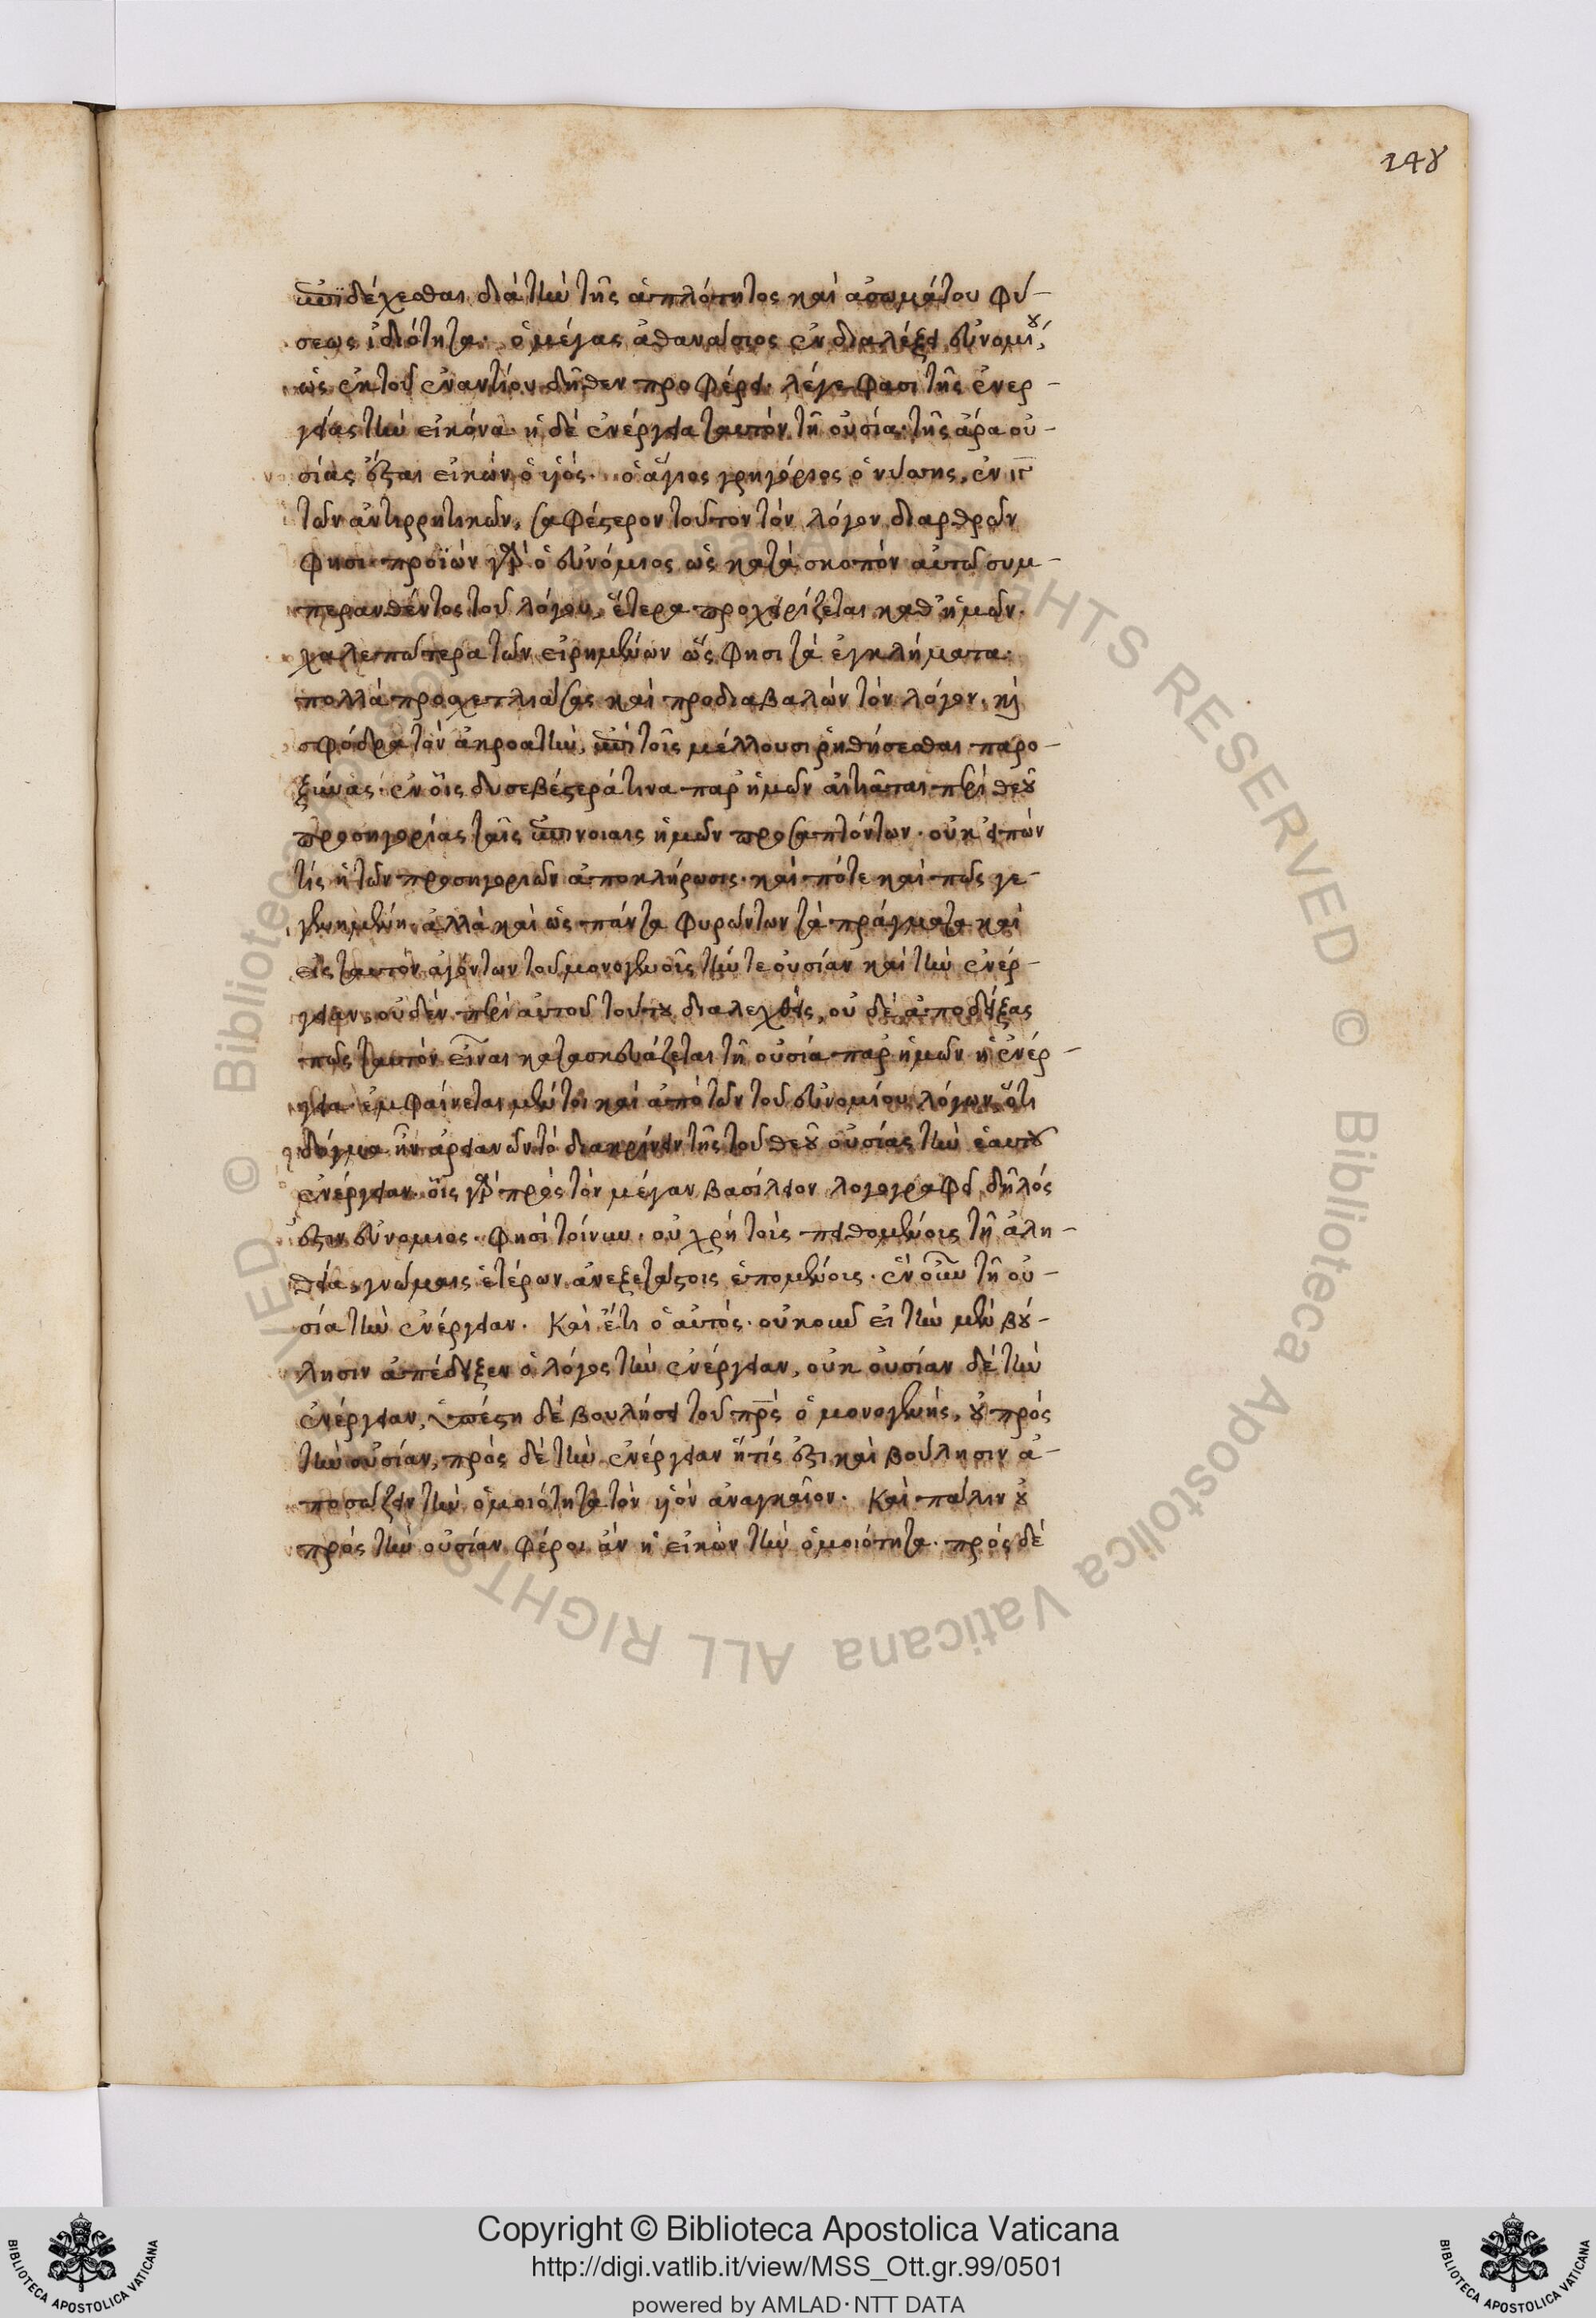 248
ἐπιδέχεσθαι διὰ τὴν τῆς ἁπλότητος καὶ ἀσωμάτου φύ-
σεως ἰδιότητα· ὁ μέγας ἀθανάσιος ἐν διαλέξει εὐνομίου,
ὡς ἐκ τοῦ ἐναντίου δῆθεν προφέρει· λέγε φασι τῆς ἐνερ-
γείας τὴν εἰκόνα· ἡ δὲ ἐνέργεια ταυτὸν τῇ οὐσίᾳ· τῆς ἄρα οὐ-
σίας ἔσται εἰκὼν ὁ υἱός· ὁ ἅγιος γρηγόριος ὁ νύσσης, ἐν
τῶν ἀντιρρητικῶν, σαφέστερον τοῦτον τὸν λόγον διαρθρῶν
φησι προϊών γὰρ ὁ εὐνόμιος ὡς κατὰ σκοπὸν αὐτῷ συμ-
περανθέντος τοῦ λόγου, ἕτερα προχειρίζεται καθ' ἡμῶν·
χαλεπώτερα τῶν εἰρημένων ὥς φησι τὰ ἐγκλήματα·
πολλὰ προσχετλιάσας καὶ προδιαβαλὼν τὸν λόγον, καὶ
σφόδρα τὸν ἀκροατὴν, ἐπὶ τοῖς μέλλουσι ῥηθήσεσθαι παρο-
ξύνας· ἐν οἷς δυσεβέστερά τινα παρ' ἡμῶν αἰτιᾶται περὶ θεοῦ
προσηγορίας ταῖς ἐπινοίαις ἡμῶν προσαπτόντων· οὐκ εἰπὼν
τίς ἡ τῶν προσηγοριῶν ἀποκλήρωσις· καὶ πότε καὶ πῶς γε-
γενημένη· ἀλλὰ καὶ ὡς πάντα φυρώντων τὰ πράγματα καὶ
εἰς ταυτὸν ἀγόντων τοῦ μονογενοῦς τήν τε οὐσίαν καὶ τὴν ἐνέρ-
γειαν, οὐδὲν περὶ αὐτοῦ τούτου διαλεχθείς, οὐδὲ ἀποδείξας
πῶς ταυτὸν εἶναι κατασκευάζεται τῇ οὐσίᾳ παρ' ἡμῶν ἡ ἐνέρ-
γεια· ἐμφαίνεται μέντοι καὶ ἀπὸ τῶν τοῦ εὐνομίου λόγων, ὅτι
δόγμα ἦν ἀρειανῶν τὸ διακρίνειν τῆς τοῦ θεοῦ οὐσίας τὴν ἑαυτοῦ
ἐνέργειαν· οἷς γὰρ πρὸς τὸν μέγαν βασίλειον λογογραφεῖ, δῆλός
ἐστιν εὐνόμιος· φησὶ τοίνυν· οὐ χρὴ τοῖς πειθομένοις τῇ ἀλη-
θείᾳ, γνώμαις ἑτέρων ἀνεξετάστοις ἑπομένοις· ἑνοῦν τῇ οὐ-
σίᾳ τὴν ἐνέργειαν. Καὶ ἔτι ὁ αὐτός· οὐκοῦν εἰ τὴν μὲν βού-
λησιν ἀπέδειξεν ὁ λόγος τὴν ἐνέργειαν, οὐκ οὐσίαν δὲ τὴν
ἐνέργειαν, ὑπέστη δὲ βουλήσει τοῦ πρς ὁ μονογενής, οὐ πρὸς
τὴν οὐσίαν, πρὸς δὲ τὴν ἐνέργειαν ἥτίς ἐστι καὶ βούλησιν ἀ-
ποσώζειν τὴν ὁμοιότητα τὸν υἱὸν ἀναγκαῖον. Καὶ πάλιν οὐ
πρὸς τὴν οὐσίαν φέροι ἂν ἡ εἰκὼν τὴν ὁμοιότητα· πρὸς δὲ
© Biblioteca Apostolica Vaticana ALL RIGHTS RESERVED © Biblioteca Apostolica Vaticana ALL RIGHTS RESERVED
BIBLIOTECA APOSTOLICA VATICANA
Copyright © Biblioteca Apostolica Vaticana
http://digi.vatlib.it/view/MSS_Ott.gr.99/0501
powered by AMLAD·NTT DATA
BIBLIOTECA APOSTOLICA VATICANA